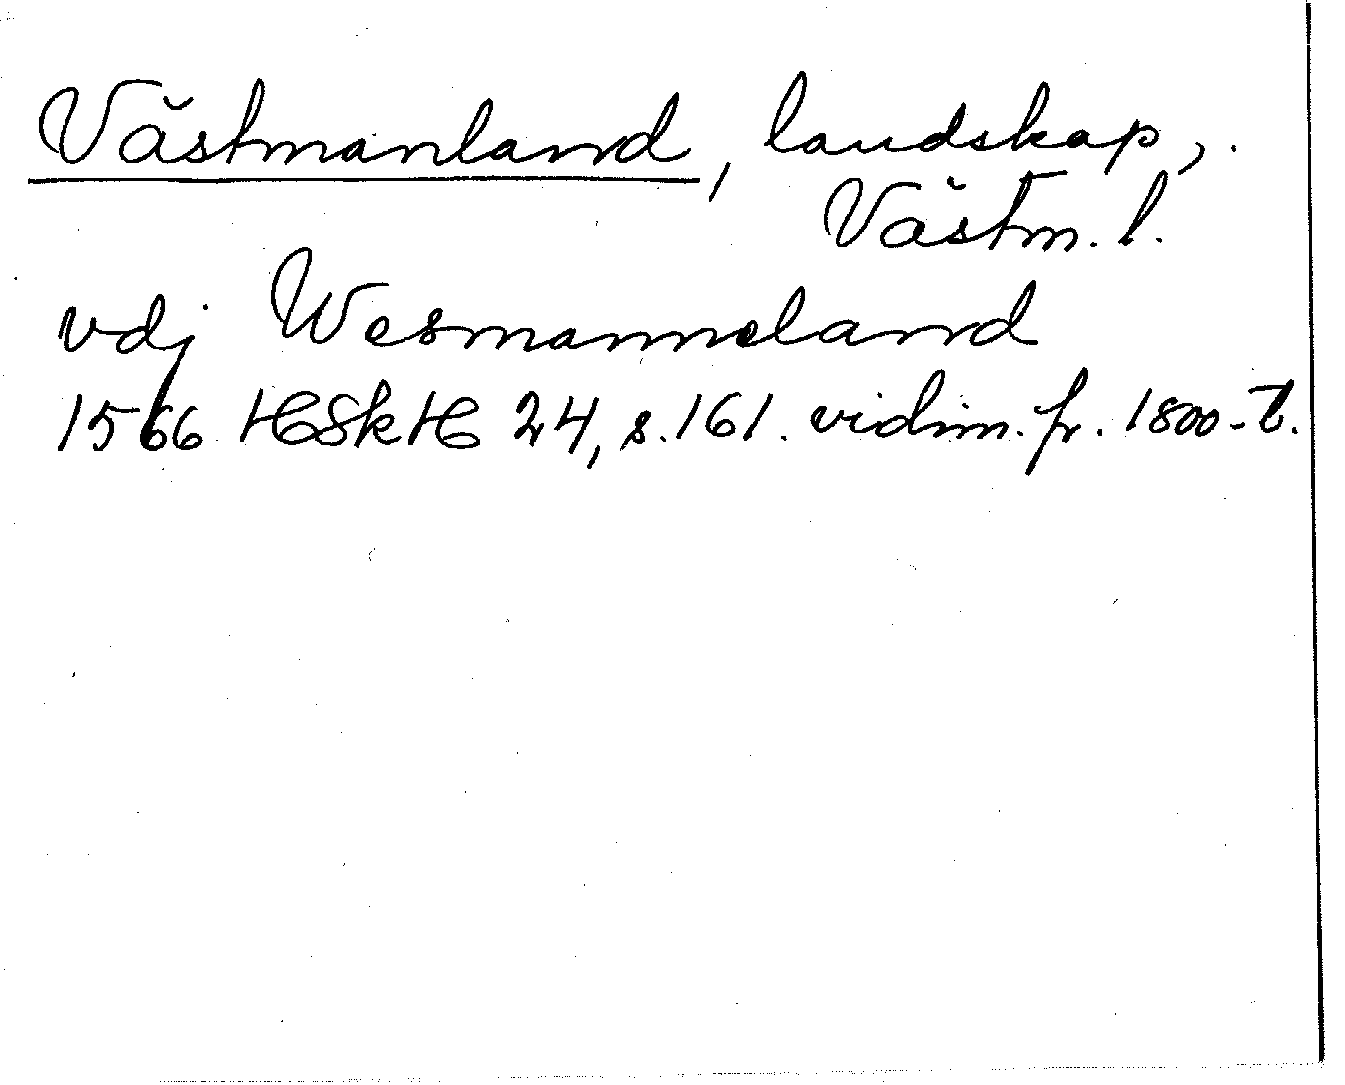 Västmanland, landskap,
Västm. l.
vdj Wesmanneland
1566 HSkH 24, s. 161. vidim. fr. 1800-t.